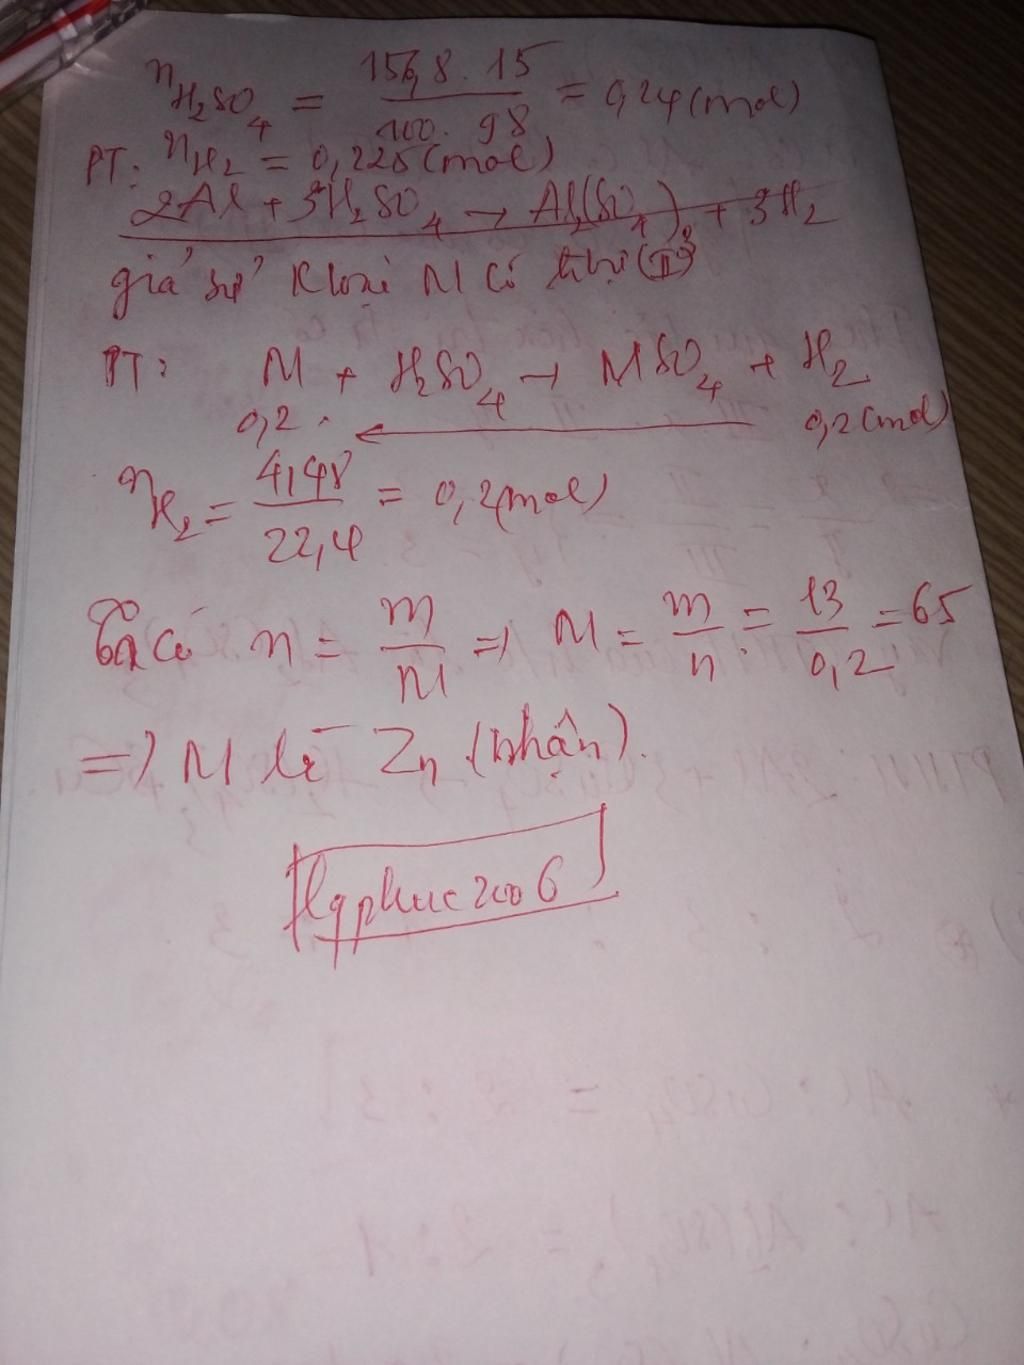 nH₂SO₄ = 156,8 . 15 / 100 . 98 = 0,24 (mol)
PT: nH₂ = 0,225 (mol)
2Al + 3H₂SO₄ → Al₂(SO₄)₃ + 3H₂
giả sử K loại M có (II)
PT: M + H₂SO₄ → MSO₄ + H₂
0,2 . ← 0,2 (mol)
nH₂ = 4,48 / 22,4 = 0,2 (mol)
Ta có n = m / M => M = m / n = 13 / 0,2 = 65
=> M là Zn (nhận).
Hqphuc2006